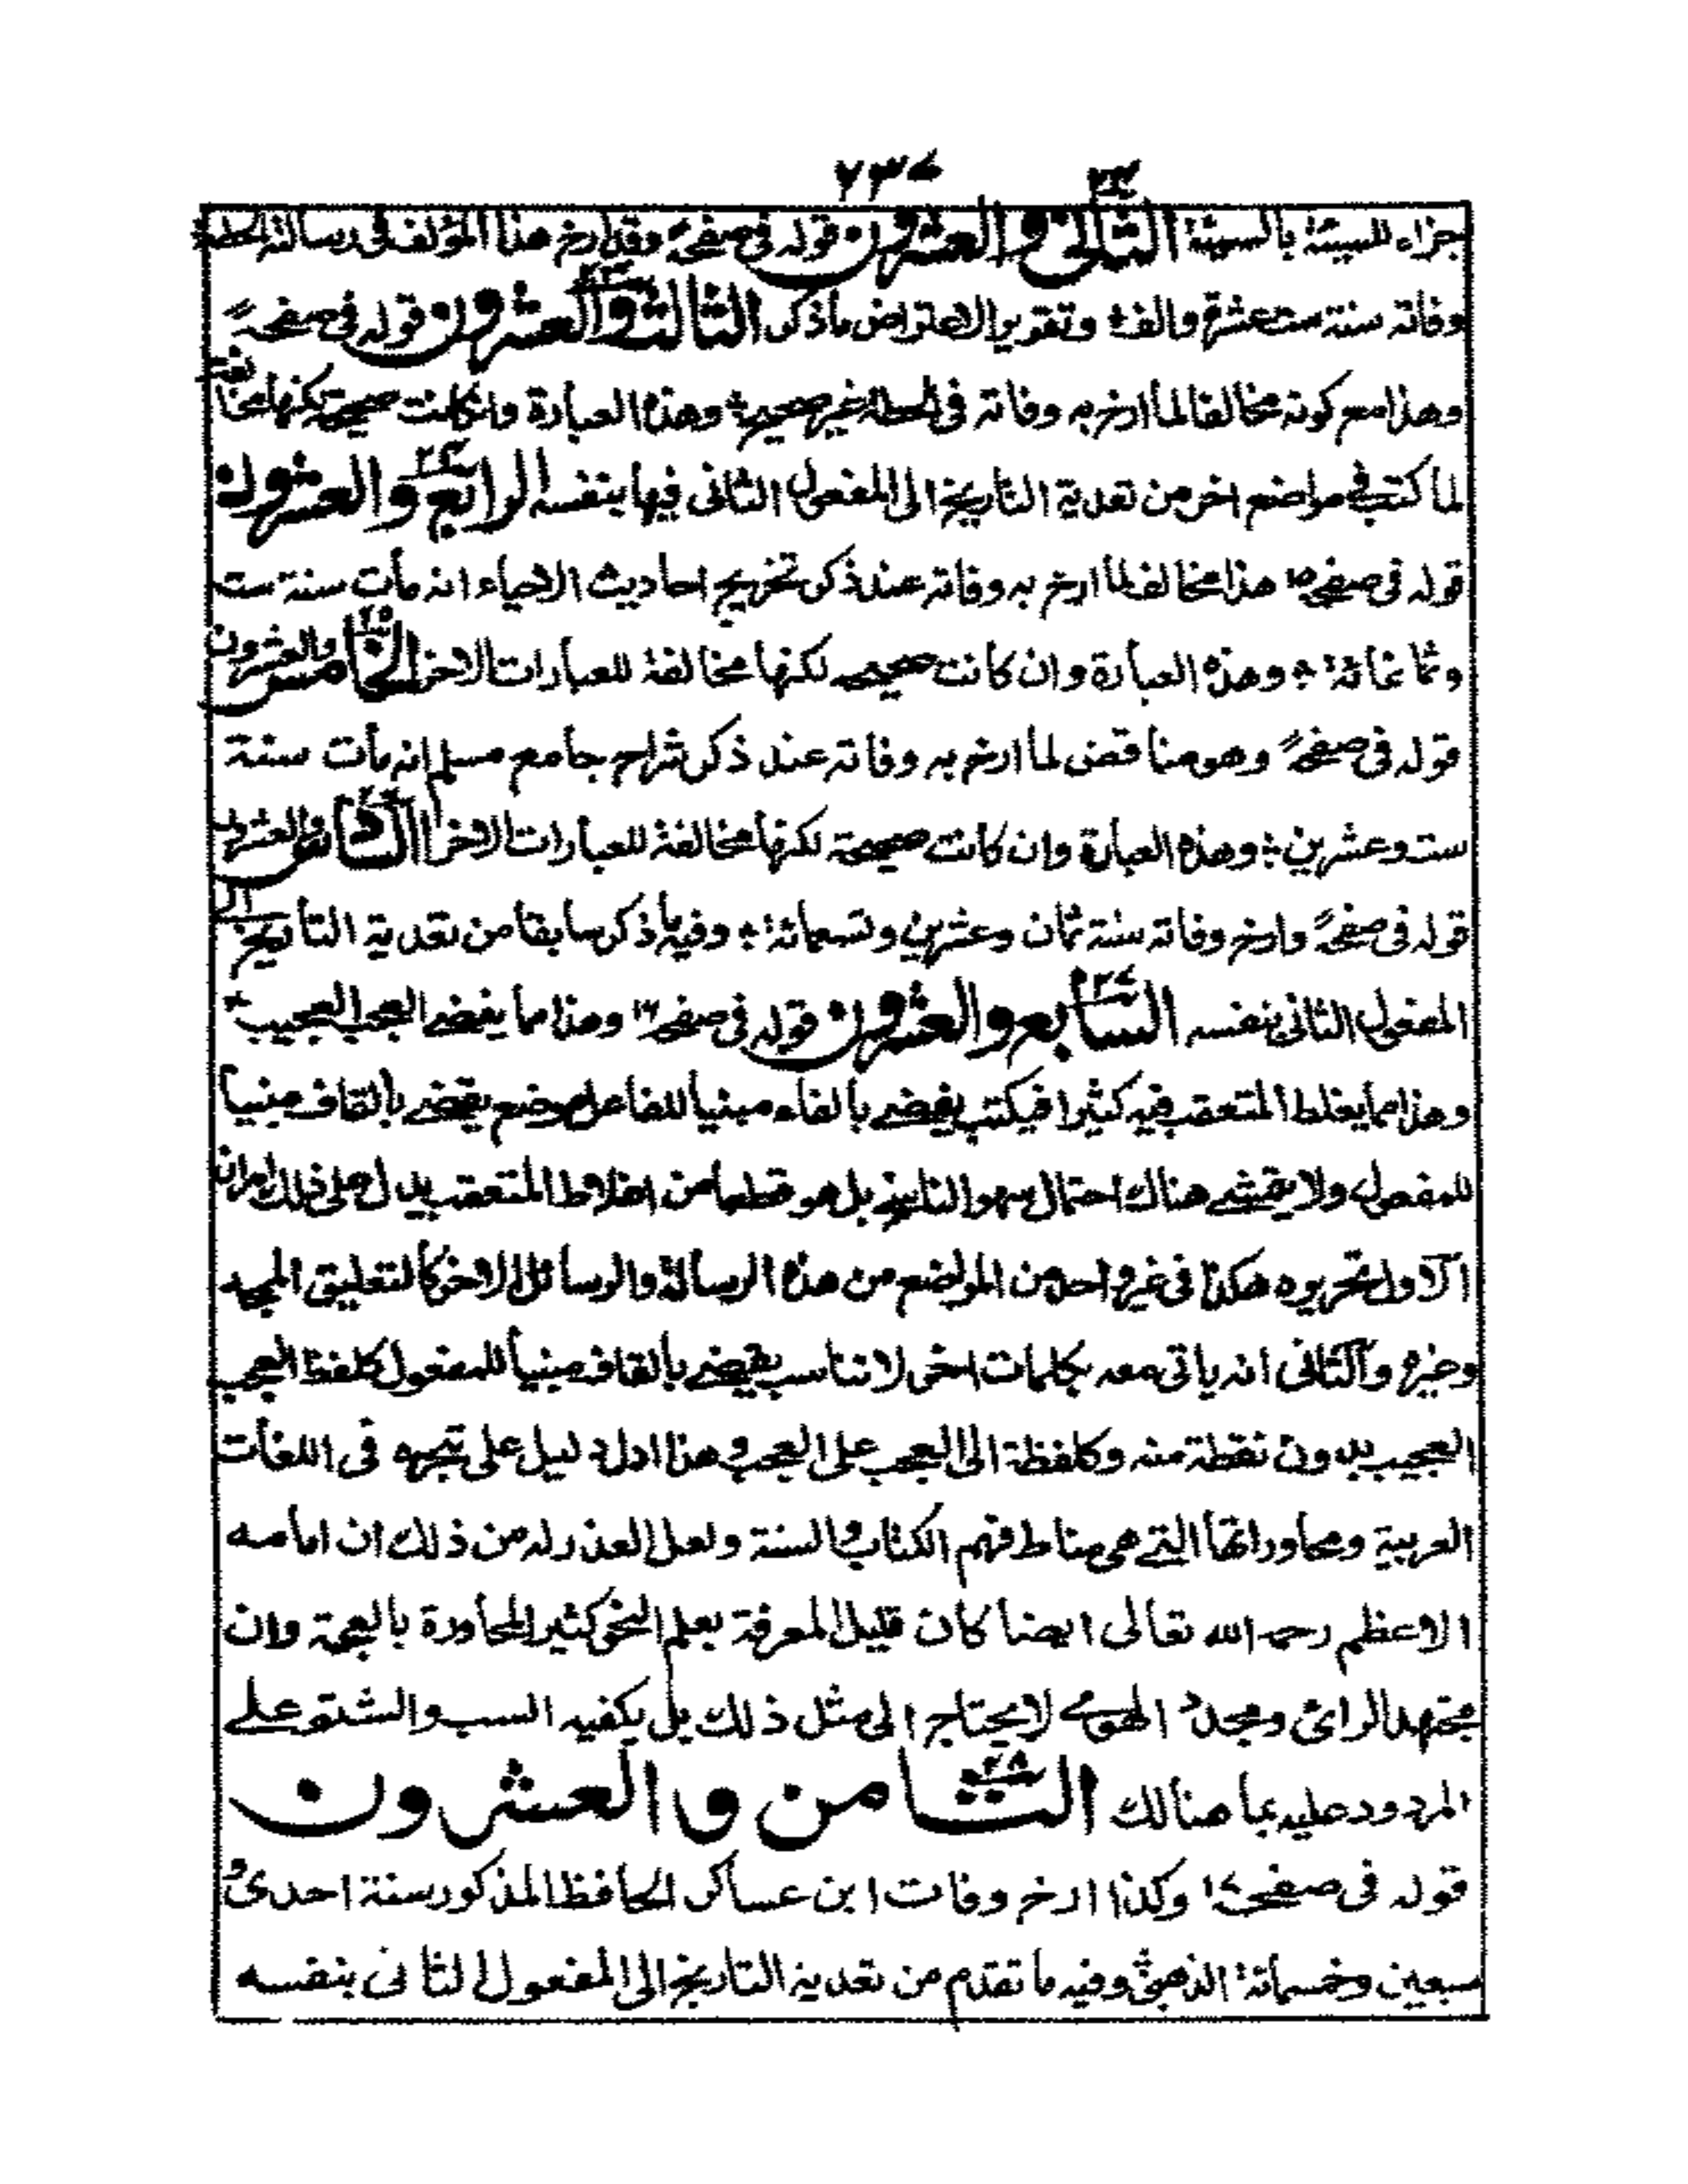 ٧٣٧
جزاء للسيئة بالسيئة الثاني والعشرون قوله في صفحة وقد ارخ هذا المؤلف فى رسالته الحطة
وفاته سنة ست عشرة والف ؞ وتقرير الاعتراض ما ذكر الثالث والعشرون قوله فى صفحة
وهذا مع كونه مخالفا لما ارخ به وفاته فى الحطة غير صحيح ؞ وهذه العبارة وانكانت صحيحة لكنها مخالفة
لما كتب فى مواضع اخر من تعدية التاريخ الى المفعول الثانى فيها بنفسه الرابع والعشرون
قوله فى صفحة ١٥ هذا مخالف لما ارخ به وفاته عند ذكر تخريج احاديث الاحياء انه مات سنة ست
وثمانمائة ؞ وهذه العبارة وان كانت صحيحه لكنها مخالفة للعبارات الاخر الخامس والعشرون
قوله فى صفحة وهو مناقض لما ارخ به وفاته عند ذكر شراح جامع مسلم انه مات سنة
ست وعشرين ؞ وهذه العبارة وان كانت صحيحة لكنها مخالفة للعبارات الاخر السادس والعشرون
قوله فى صفحة وارخ وفاته سنة ثمان وعشرين وتسعمائة ؞ وفيه ما ذكر سابقا من تعدية التاريخ الى
المفعول الثانى بنفسه السابع والعشرون قوله فى صفحة ١٦ وهذا مما يفضے العجب العجيب ؞
وهذا مما يغلط المتعقب فيه كثيرا فيكتب يفضے بالفاء مبنيا للفاعل موضع يقضے بالقاف مبنيا
للمفعول ولا يتمشے هناك احتمال سهو الناسخ بل هو قطعا من اغلاط المتعقب يدل على ذلك امران
الاول تحريره هكذا فى غير واحد من المواضع من هذه الرسالة والرسائل الاخر كالتعليق الممجد
وغيره والثانى انه ياتى معه بكلمات اخرى لا تناسب يقضے بالقاف مبنيا للمفعول كلفظ العجب
العجيب بدون نقطة منه وكلفظة الى العجب على العجب وهذا ادل دليل على تبحره فى اللغات
العربية ومحاوراتها التے هى مناط فهم الكتاب والسنة ولعل العذر له من ذلك ان امامه
الاعظم رحمه الله تعالى ايضا كان قليل المعرفة بعلم النحو كثير المحاورة بالعجمة وان
مجتهد الرائ ومجدد الهوے لا يحتاج الى مثل ذلك بل يكفيه السب والشتم علے
المردود عليه بما هنالك الثامن والعشرون
قوله فى صفحة ١٧ وكذا ارخ وفات ابن عساكر الحافظ المذكور سنة احدى و
سبعين وخمسمائة الذهبى وفيه ما تقدم من تعدية التاريخ الى المفعول الثانى بنفسه